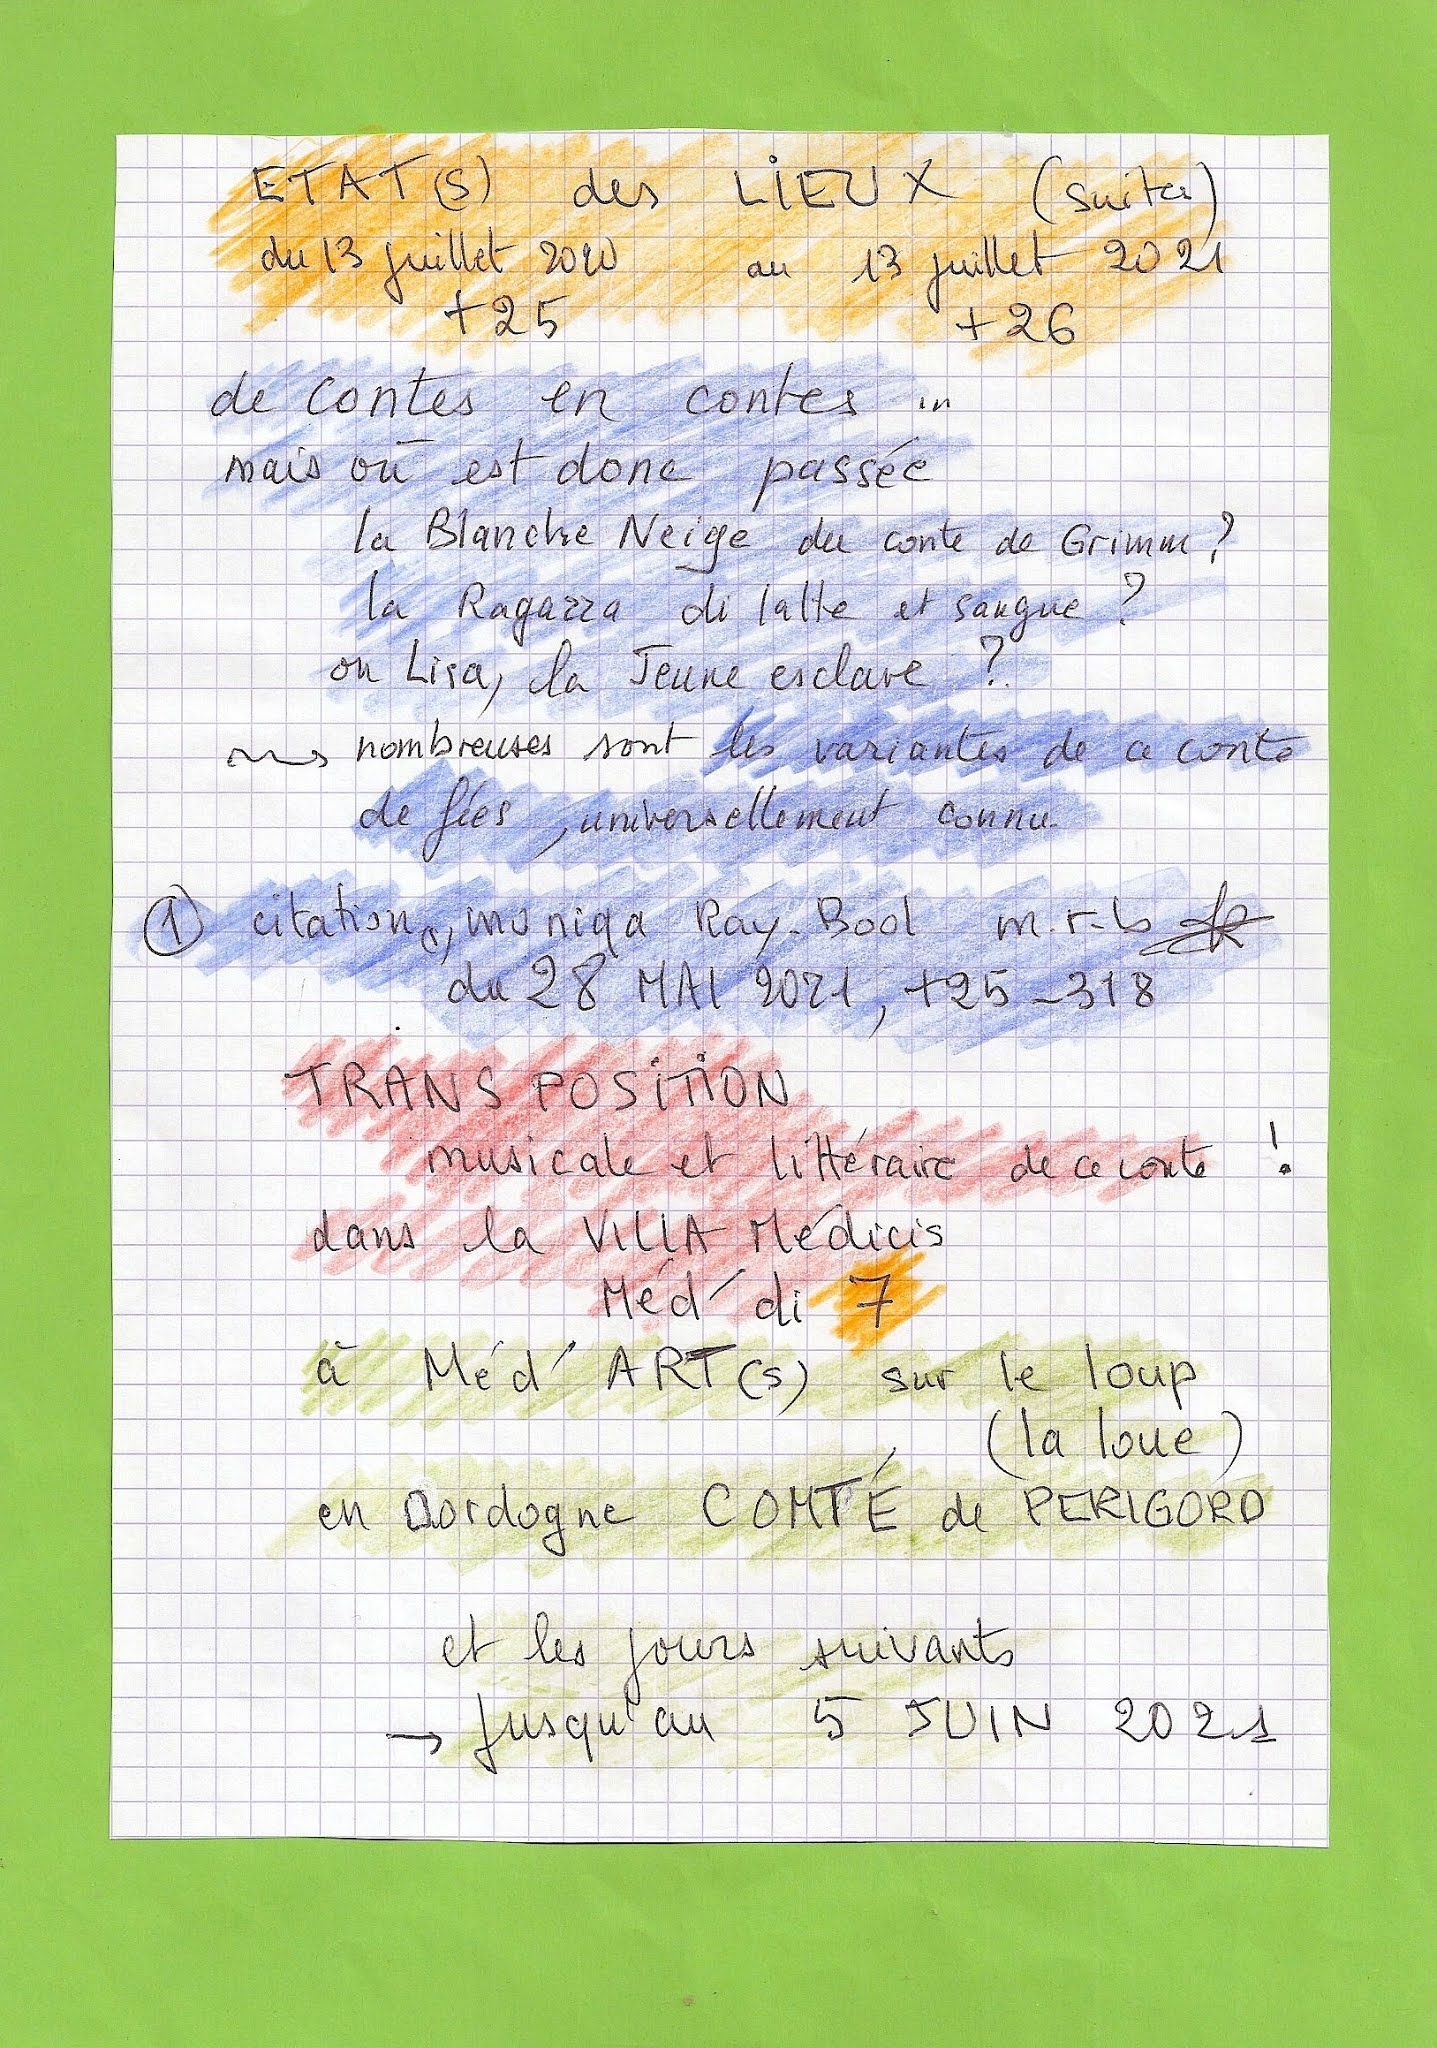 ETAT(S) des LIEUX (suites)
du 13 juillet 2020 au 13 juillet 2021
+25 +26
de contes en contes ...
mais où est donc passée
la Blanche Neige du conte de Grimm ?
la Ragazza di latte et sangue ?
ou Lisa, la Jeune esclave ?
nombreuses sont les variantes de ce conte
de fées, universellement connu.
① citation, moniqa Ray-Bool m.r-b
du 28 MAI 2021, +25-318
TRANSPOSITION
musicale et littéraire de ce conte !
dans la VILLA Médicis
Méd' di 7
à Méd' ART(s) sur le loup
(la loue)
en Dordogne COMTÉ de PERIGORD
et les jours suivants
→ Jusqu'au 5 JUIN 2021